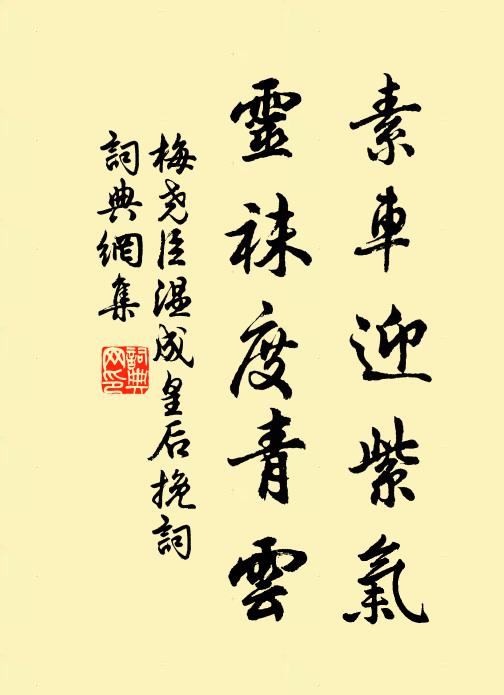 素車迎紫氣
靈袜度青雲
梅尧臣温成皇后挽詞
詞典網集
詞典网印